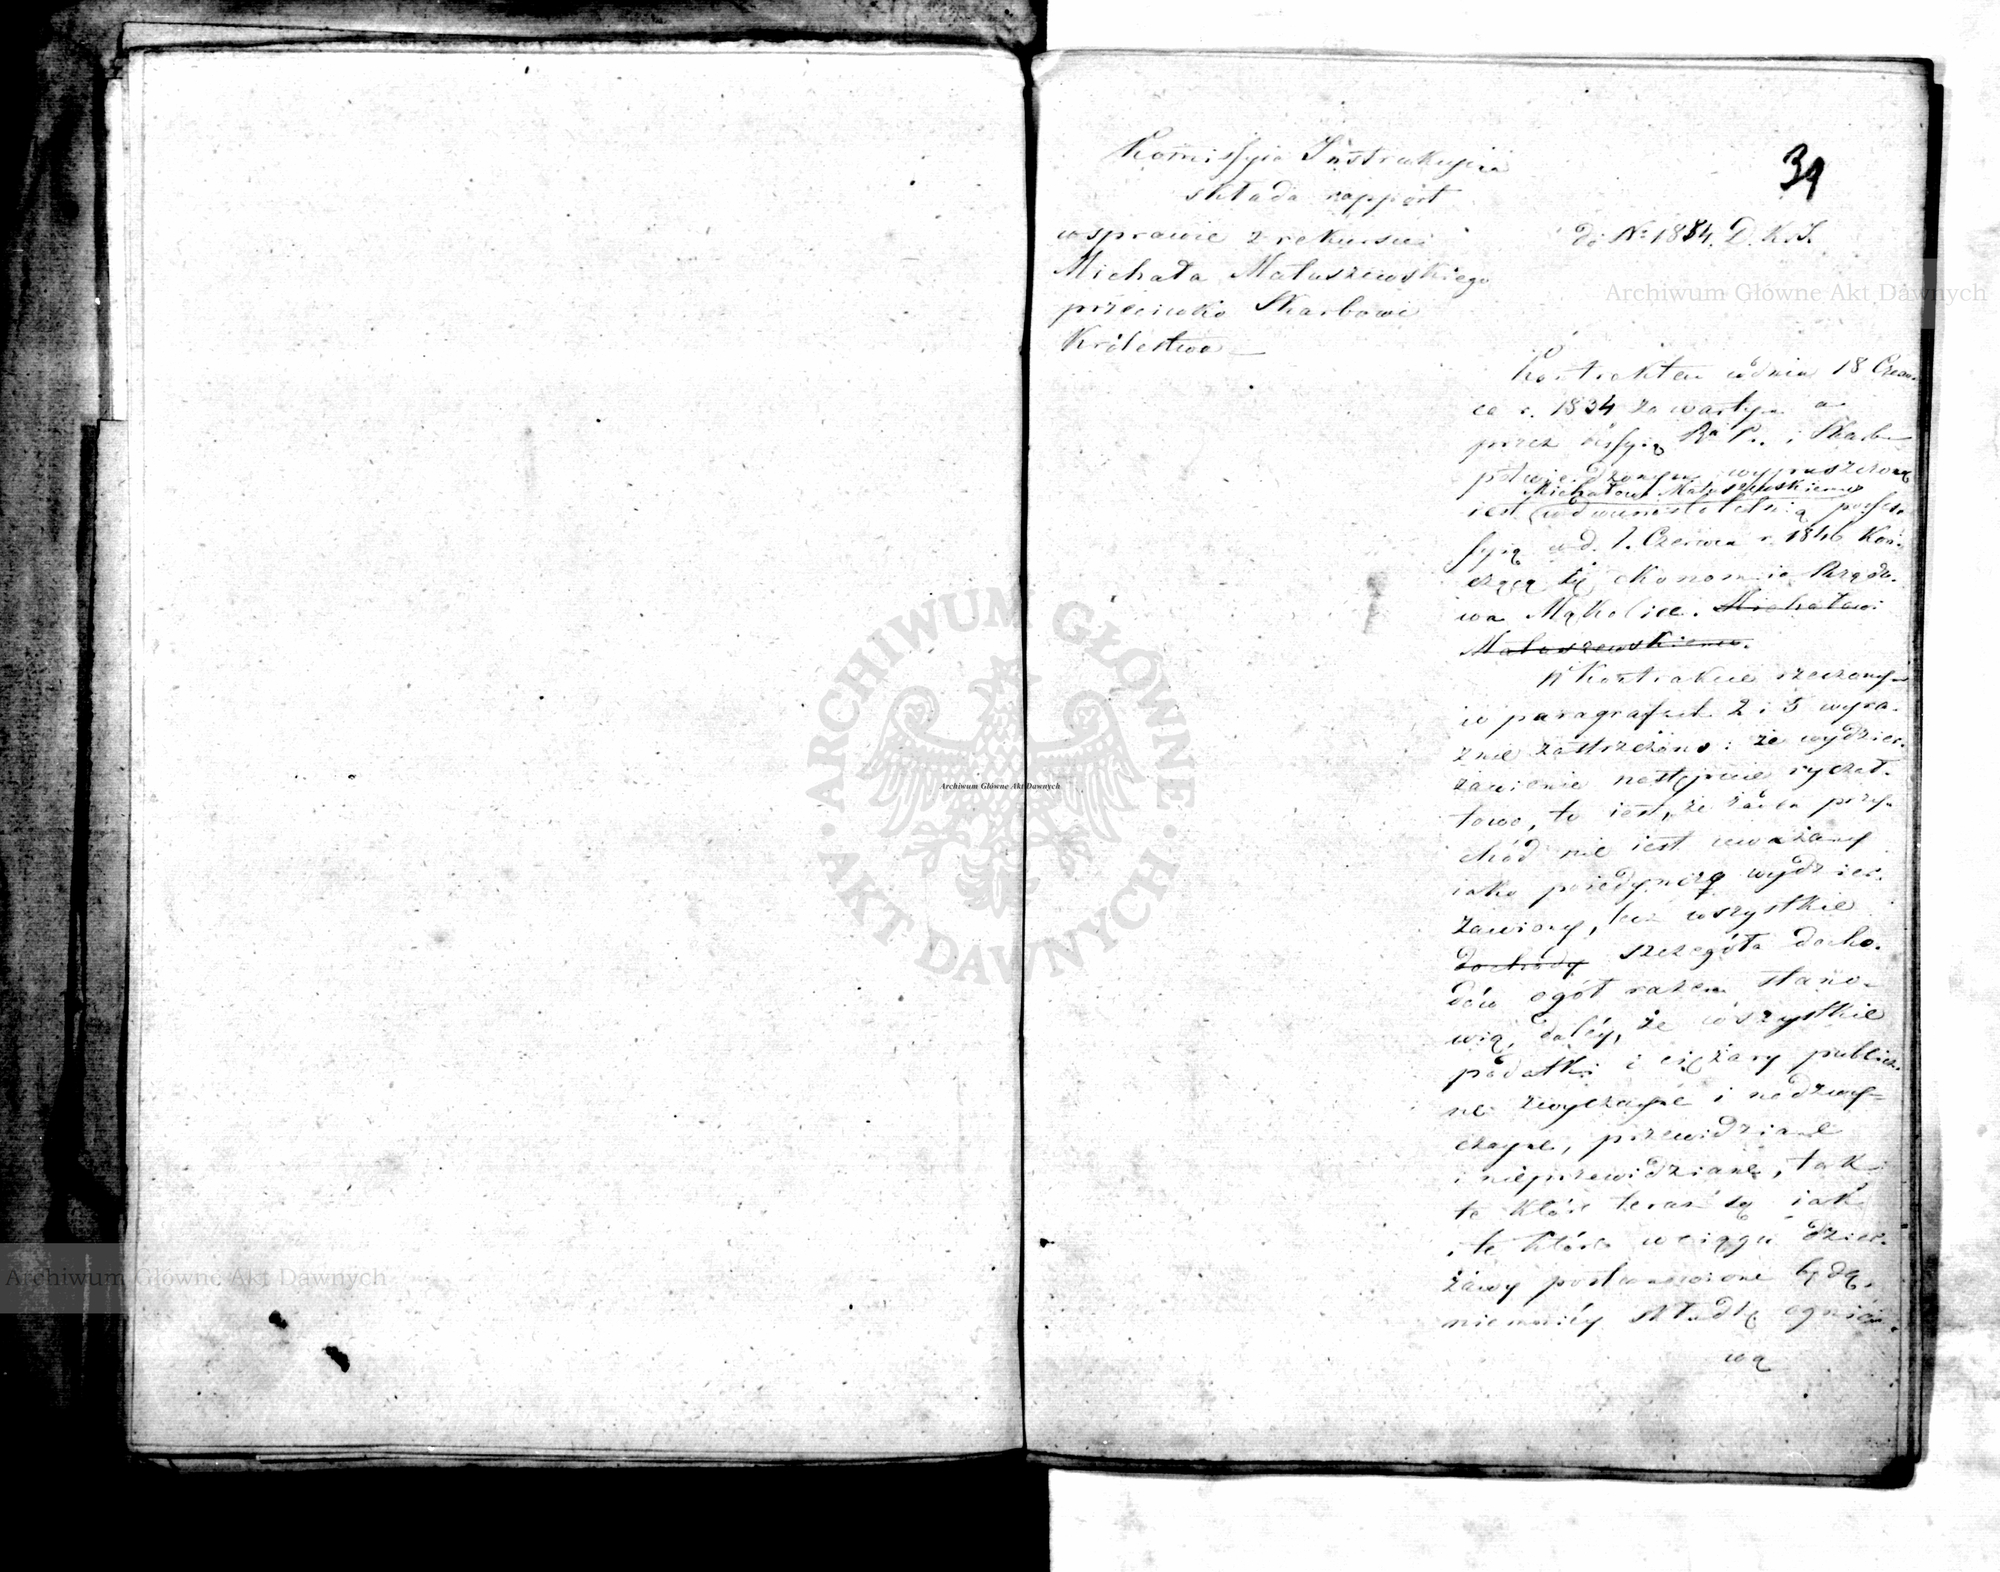 31
Komissyia Instrukcyina
składa rapport
w sprawie z rekursu
Michała Matuszewskiego
przeciwko Skarbowi
Królestwa
do No 1884. D. K. I.
Kontraktem w dniu 18 Czerw-
ca r. 1834 zawartym a
przez i Skarbu
potwierdzonym wypuszczoną
Michałowi Matuszewskiemu
iest w dwunastoletnią posses-
syią w d. 1. Czerwca r. 1846 koń-
czącą się ekonomia Rządo-
wa Mąkolice. Michałowi
Matuszewskiemu.
W kontrakcie rzeczonym
w paragrafach 2 i 5 wyra-
źnie zastrzeżono: że wydzier-
żawienie następuie ryczał-
towo, to iest, że żaden przy-
chód nie iest uważany
iako poiedynczo wydzier-
żawiony, lecz wszystkie
dochody szczegóła docho-
dów ogół razem stano-
wią, daléy, że wszystkie
podatki i ciężary publicz-
ne zwyczayne i nadzwy-
czayne, przewidziane
i nieprzewidziane, tak
te które teraz są iak
i te które w ciągu dzier-
żawy postanowione będą,
niemniéy składkę ognio-
wą
Archiwum Główne Akt Dawnych
Archiwum Główne Akt Dawnych
Archiwum Główne Akt Dawnych
ARCHIWUM GŁÓWNE AKT DAWNYCH